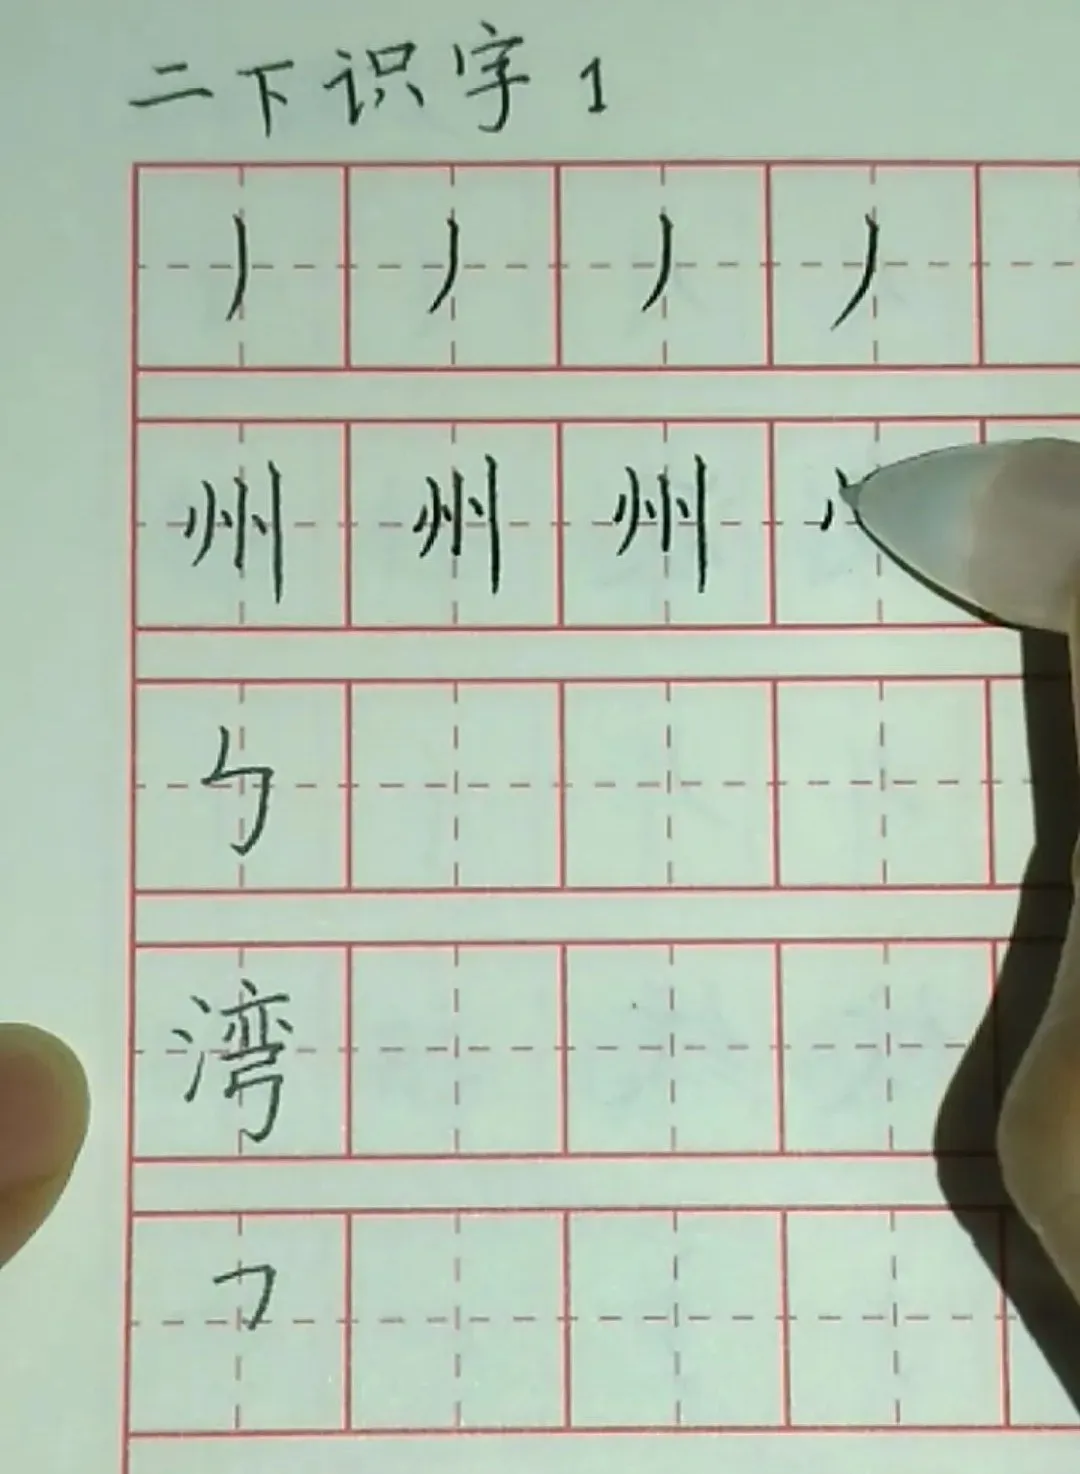 二下识字1
丿 丿 丿 丿
州 州 州
㇉
湾
㇆